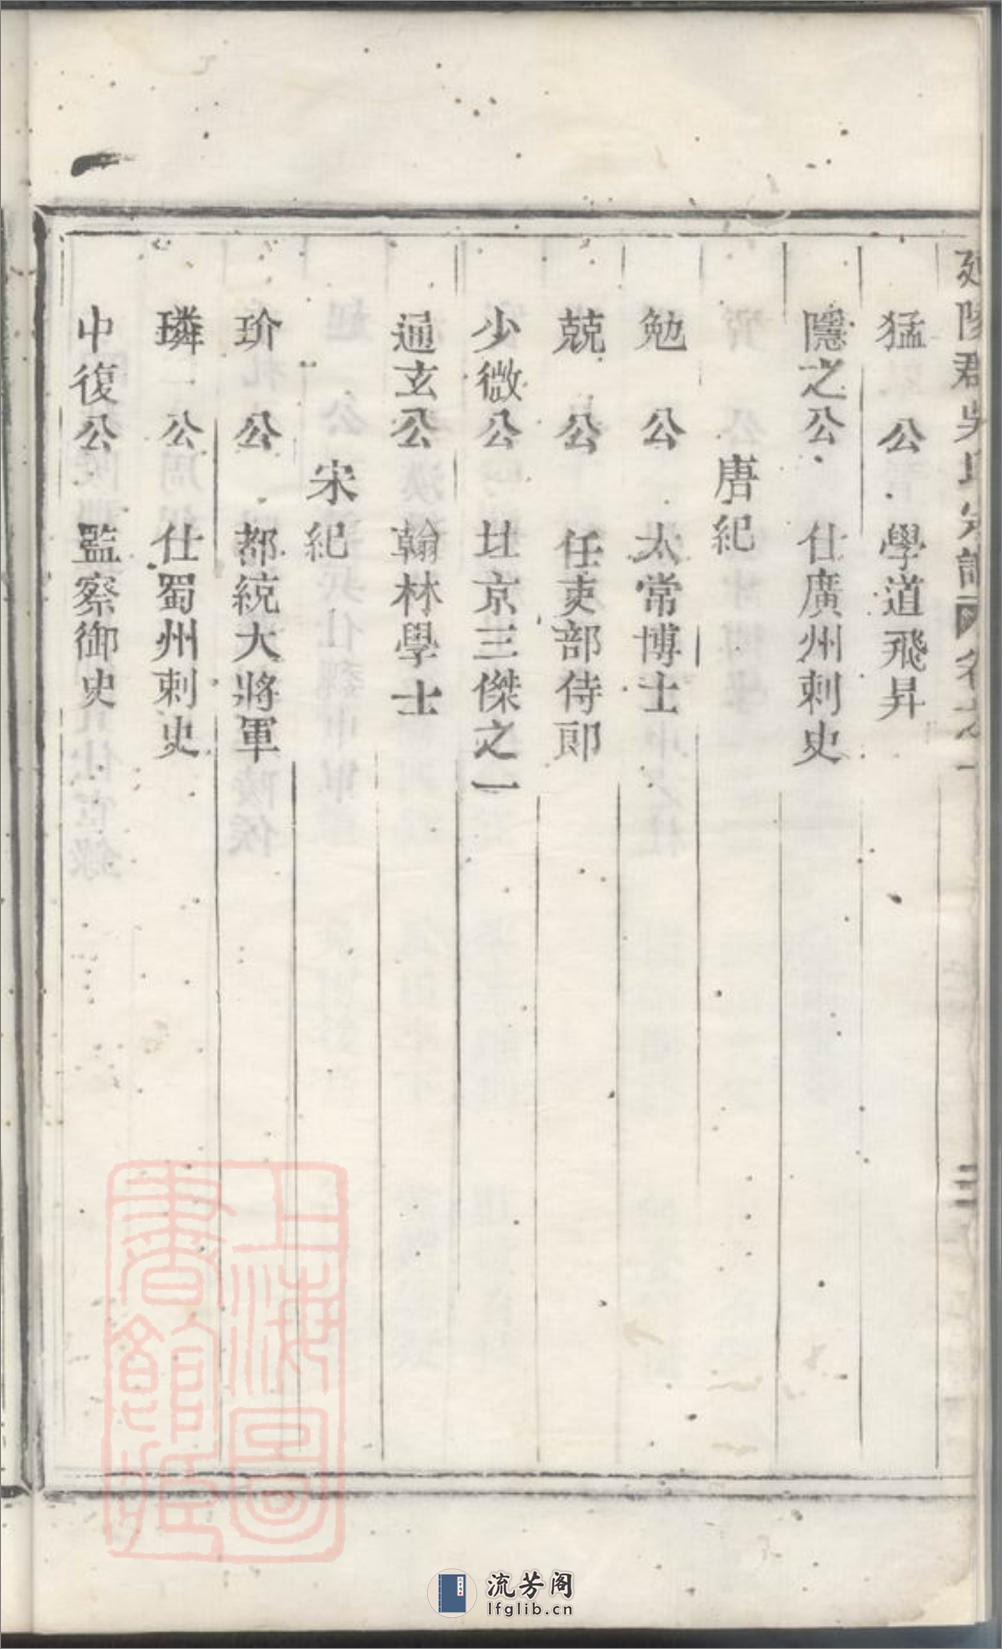 延陵郡吳氏宗譜 卷之一 二
猛 公 學道飛昇
隱之公 仕廣州刺史
唐紀
勉 公 太常博士
兢 公 任吏部侍郎
少微公 北京三傑之一
通玄公 翰林學士
宋紀
玠 公 都統大將軍
璘 公 仕蜀州刺史
中復公 監察御史
上海圖書館藏
流芳阁
lfglib.cn